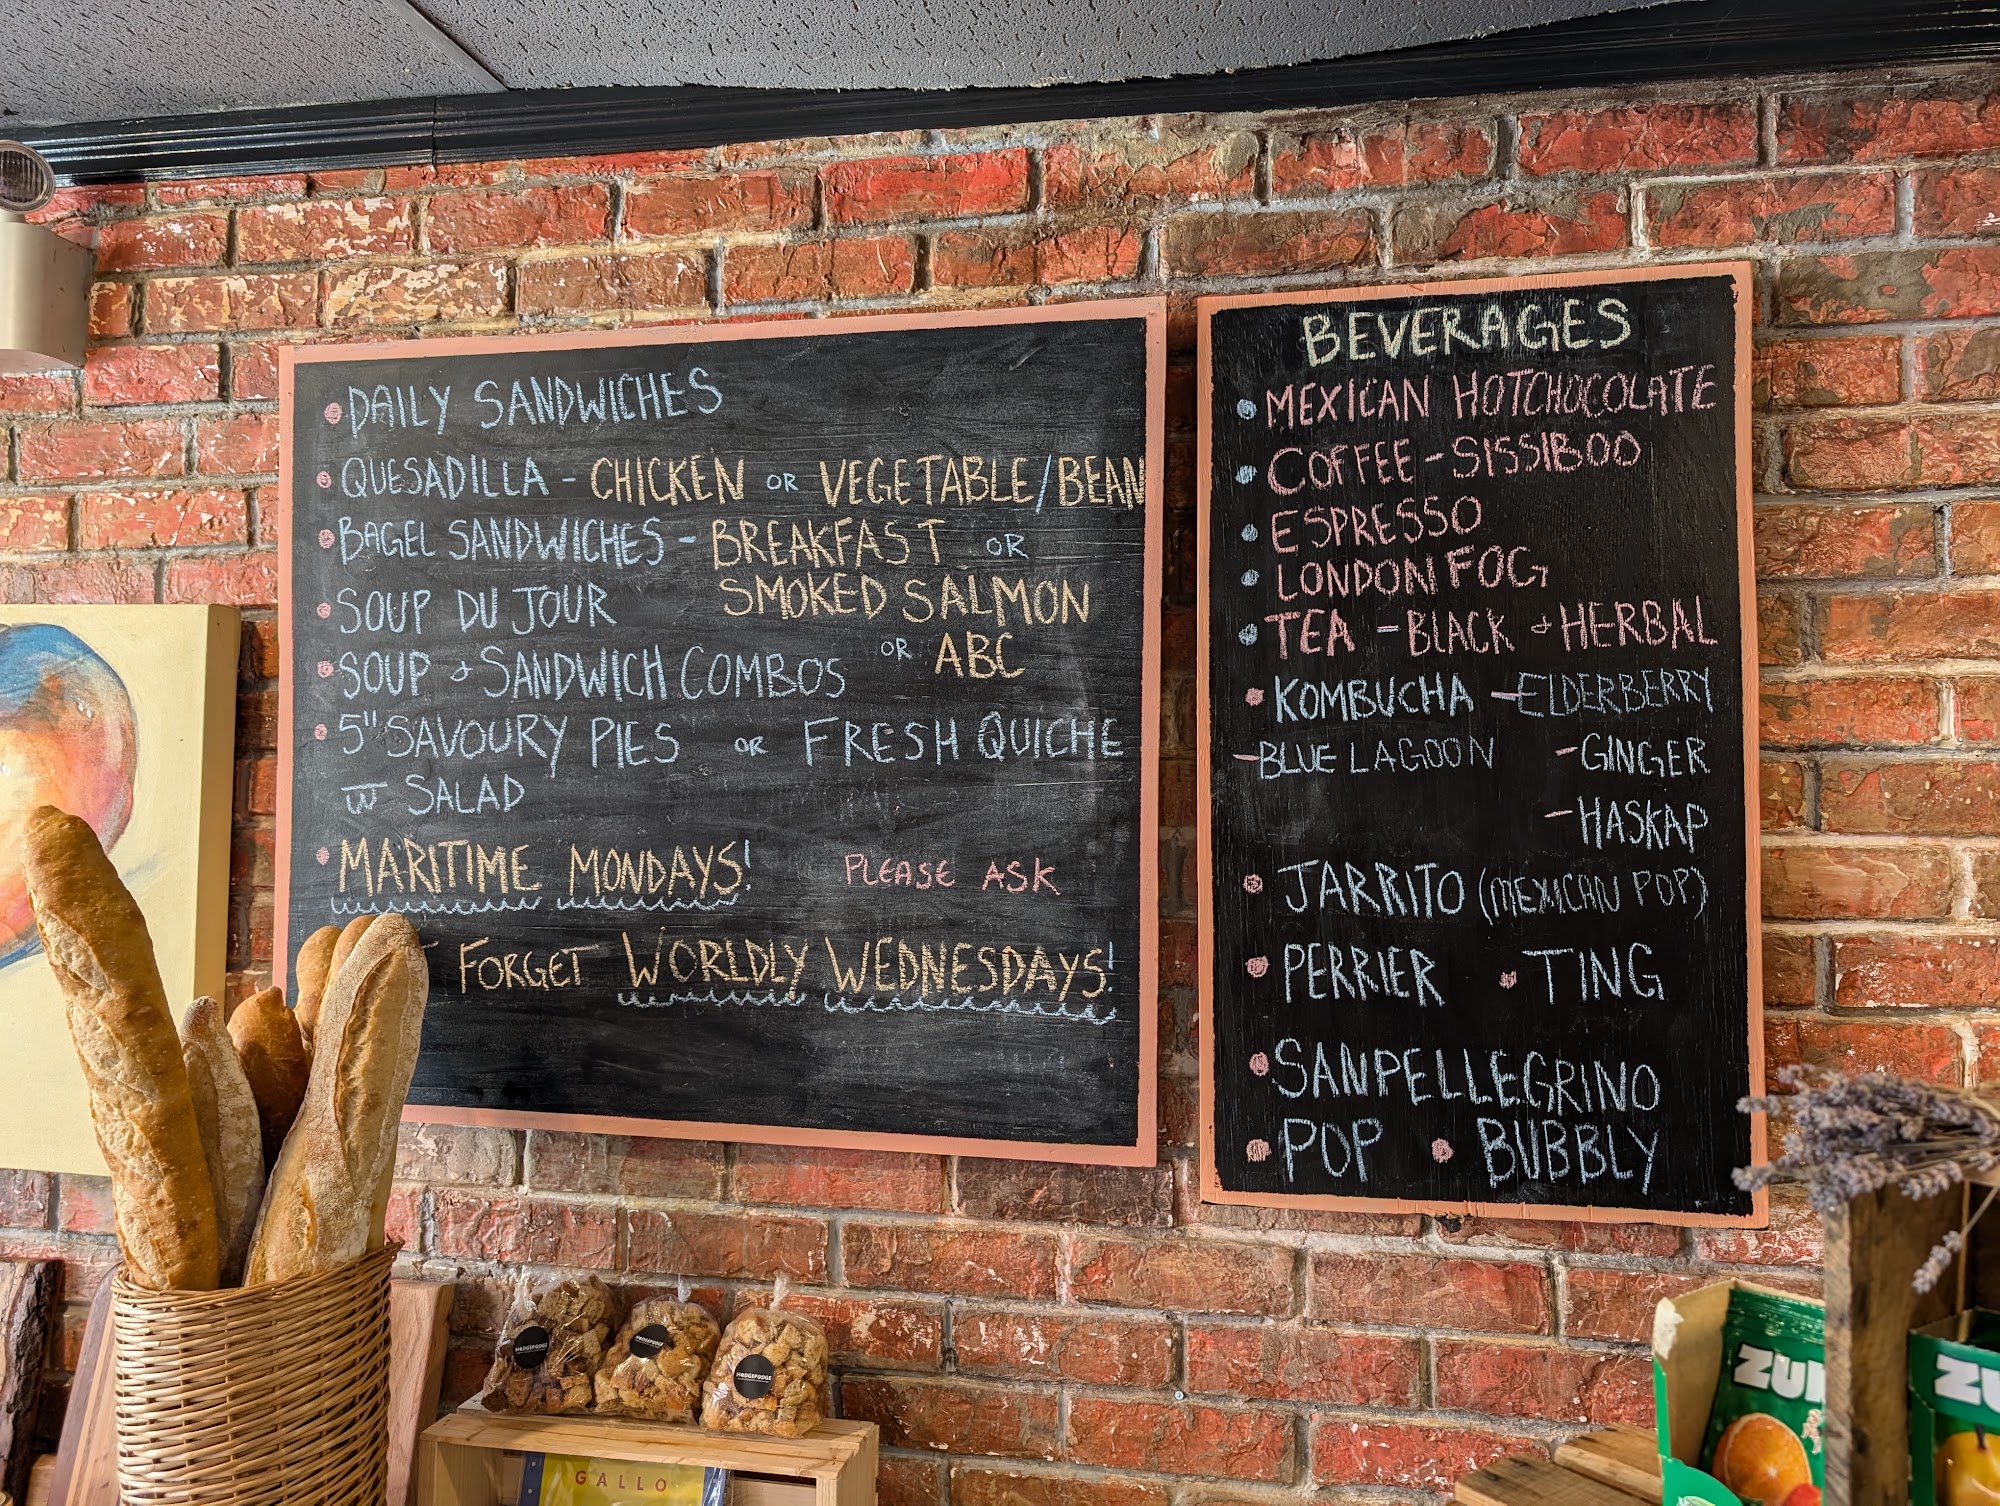 DAILY SANDWICHES
QUESADILLA - CHICKEN OR VEGETABLE/BEAN
BAGEL SANDWICHES - BREAKFAST OR
SMOKED SALMON
OR ABC
SOUP DU JOUR
SOUP + SANDWICH COMBOS
5" SAVOURY PIES OR FRESH QUICHE
W SALAD
MARITIME MONDAYS! PLEASE ASK
FORGET WORLDLY WEDNESDAYS!
BEVERAGES
MEXICAN HOTCHOCOLATE
COFFEE - SISSIBOO
ESPRESSO
LONDON FOG
TEA - BLACK + HERBAL
KOMBUCHA - ELDERBERRY
- BLUE LAGOON - GINGER
- HASKAP
JARRITO (MEXICAN POP)
PERRIER TING
SANPELLEGRINO
POP BUBBLY
HODGEPODGE
HODGEPODGE
HODGEPODGE
GALLO